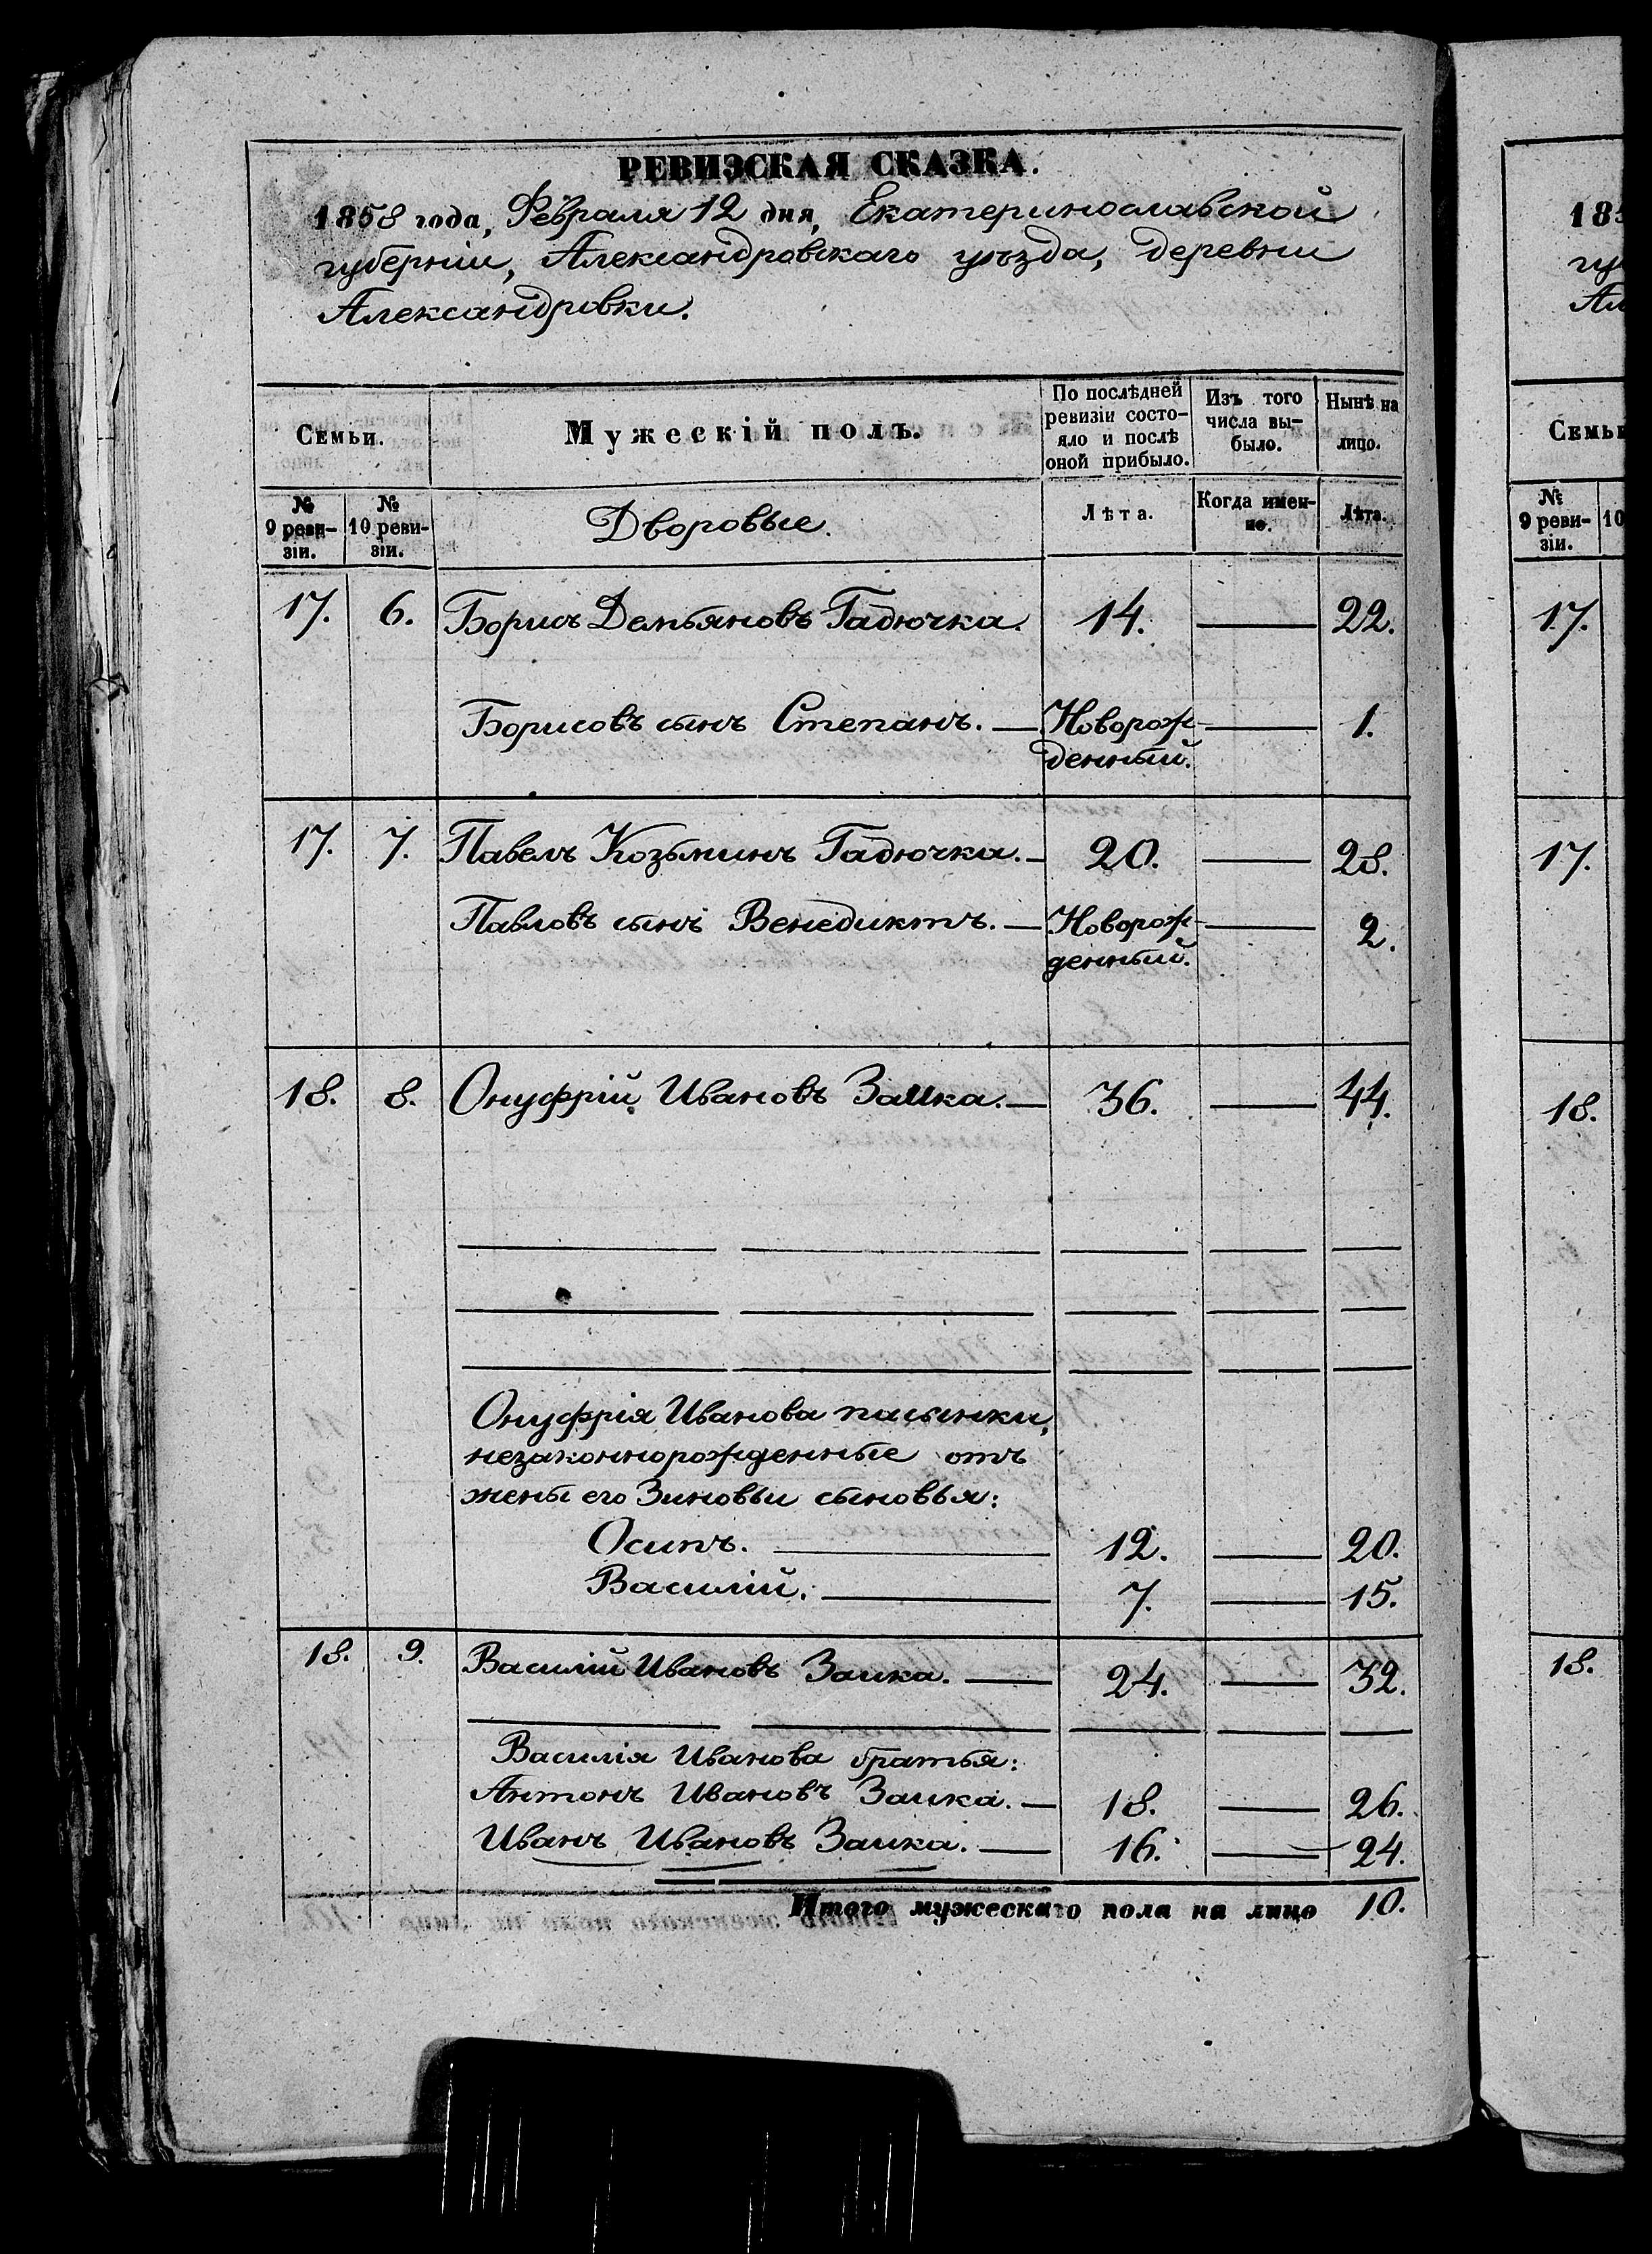 РЕВИЗСКАЯ СКАЗКА.
1858 года, Февраля 12 дня, Екатеринославской
губерніи, Александровскаго уѣзда, деревни
Александровки.
Семьи. Мужескій полъ. По послѣдней ревизіи состояло и послѣ оной прибыло. Изъ того числа выбыло. Нынѣ на лицо.
№ 9 ревизіи. № 10 ревизіи. Дворовые. Лѣта. Когда именно. Лѣта.
17. 6. Борисъ Демьяновъ Гадючка. 14. — 22.
Борисовъ сынъ Степанъ. — Новорож- — 1.
денный.
17. 7. Павелъ Козьминъ Гадючка. — 20. — 28.
Павловъ сынъ Венедиктъ. — Новорож- — 2.
денный.
18. 8. Онуфрій Ивановъ Заика. — 36. — 44.
Онуфрія Иванова пасынки,
незаконнорожденные отъ
жены его Зиновьи сыновья:
Осипъ. — 12. — 20.
Василій. — 7. — 15.
18. 9. Василій Ивановъ Заика. — 24. — 32.
Василія Иванова братья:
Антонъ Ивановъ Заика. — 18. — 26.
Иванъ Ивановъ Заика. — 16. — 24.
Итого мужескаго пола на лицо 10.
18
гу
Ал
Семь
№ 9 ревизіи. 10
17.
17.
18.
18.